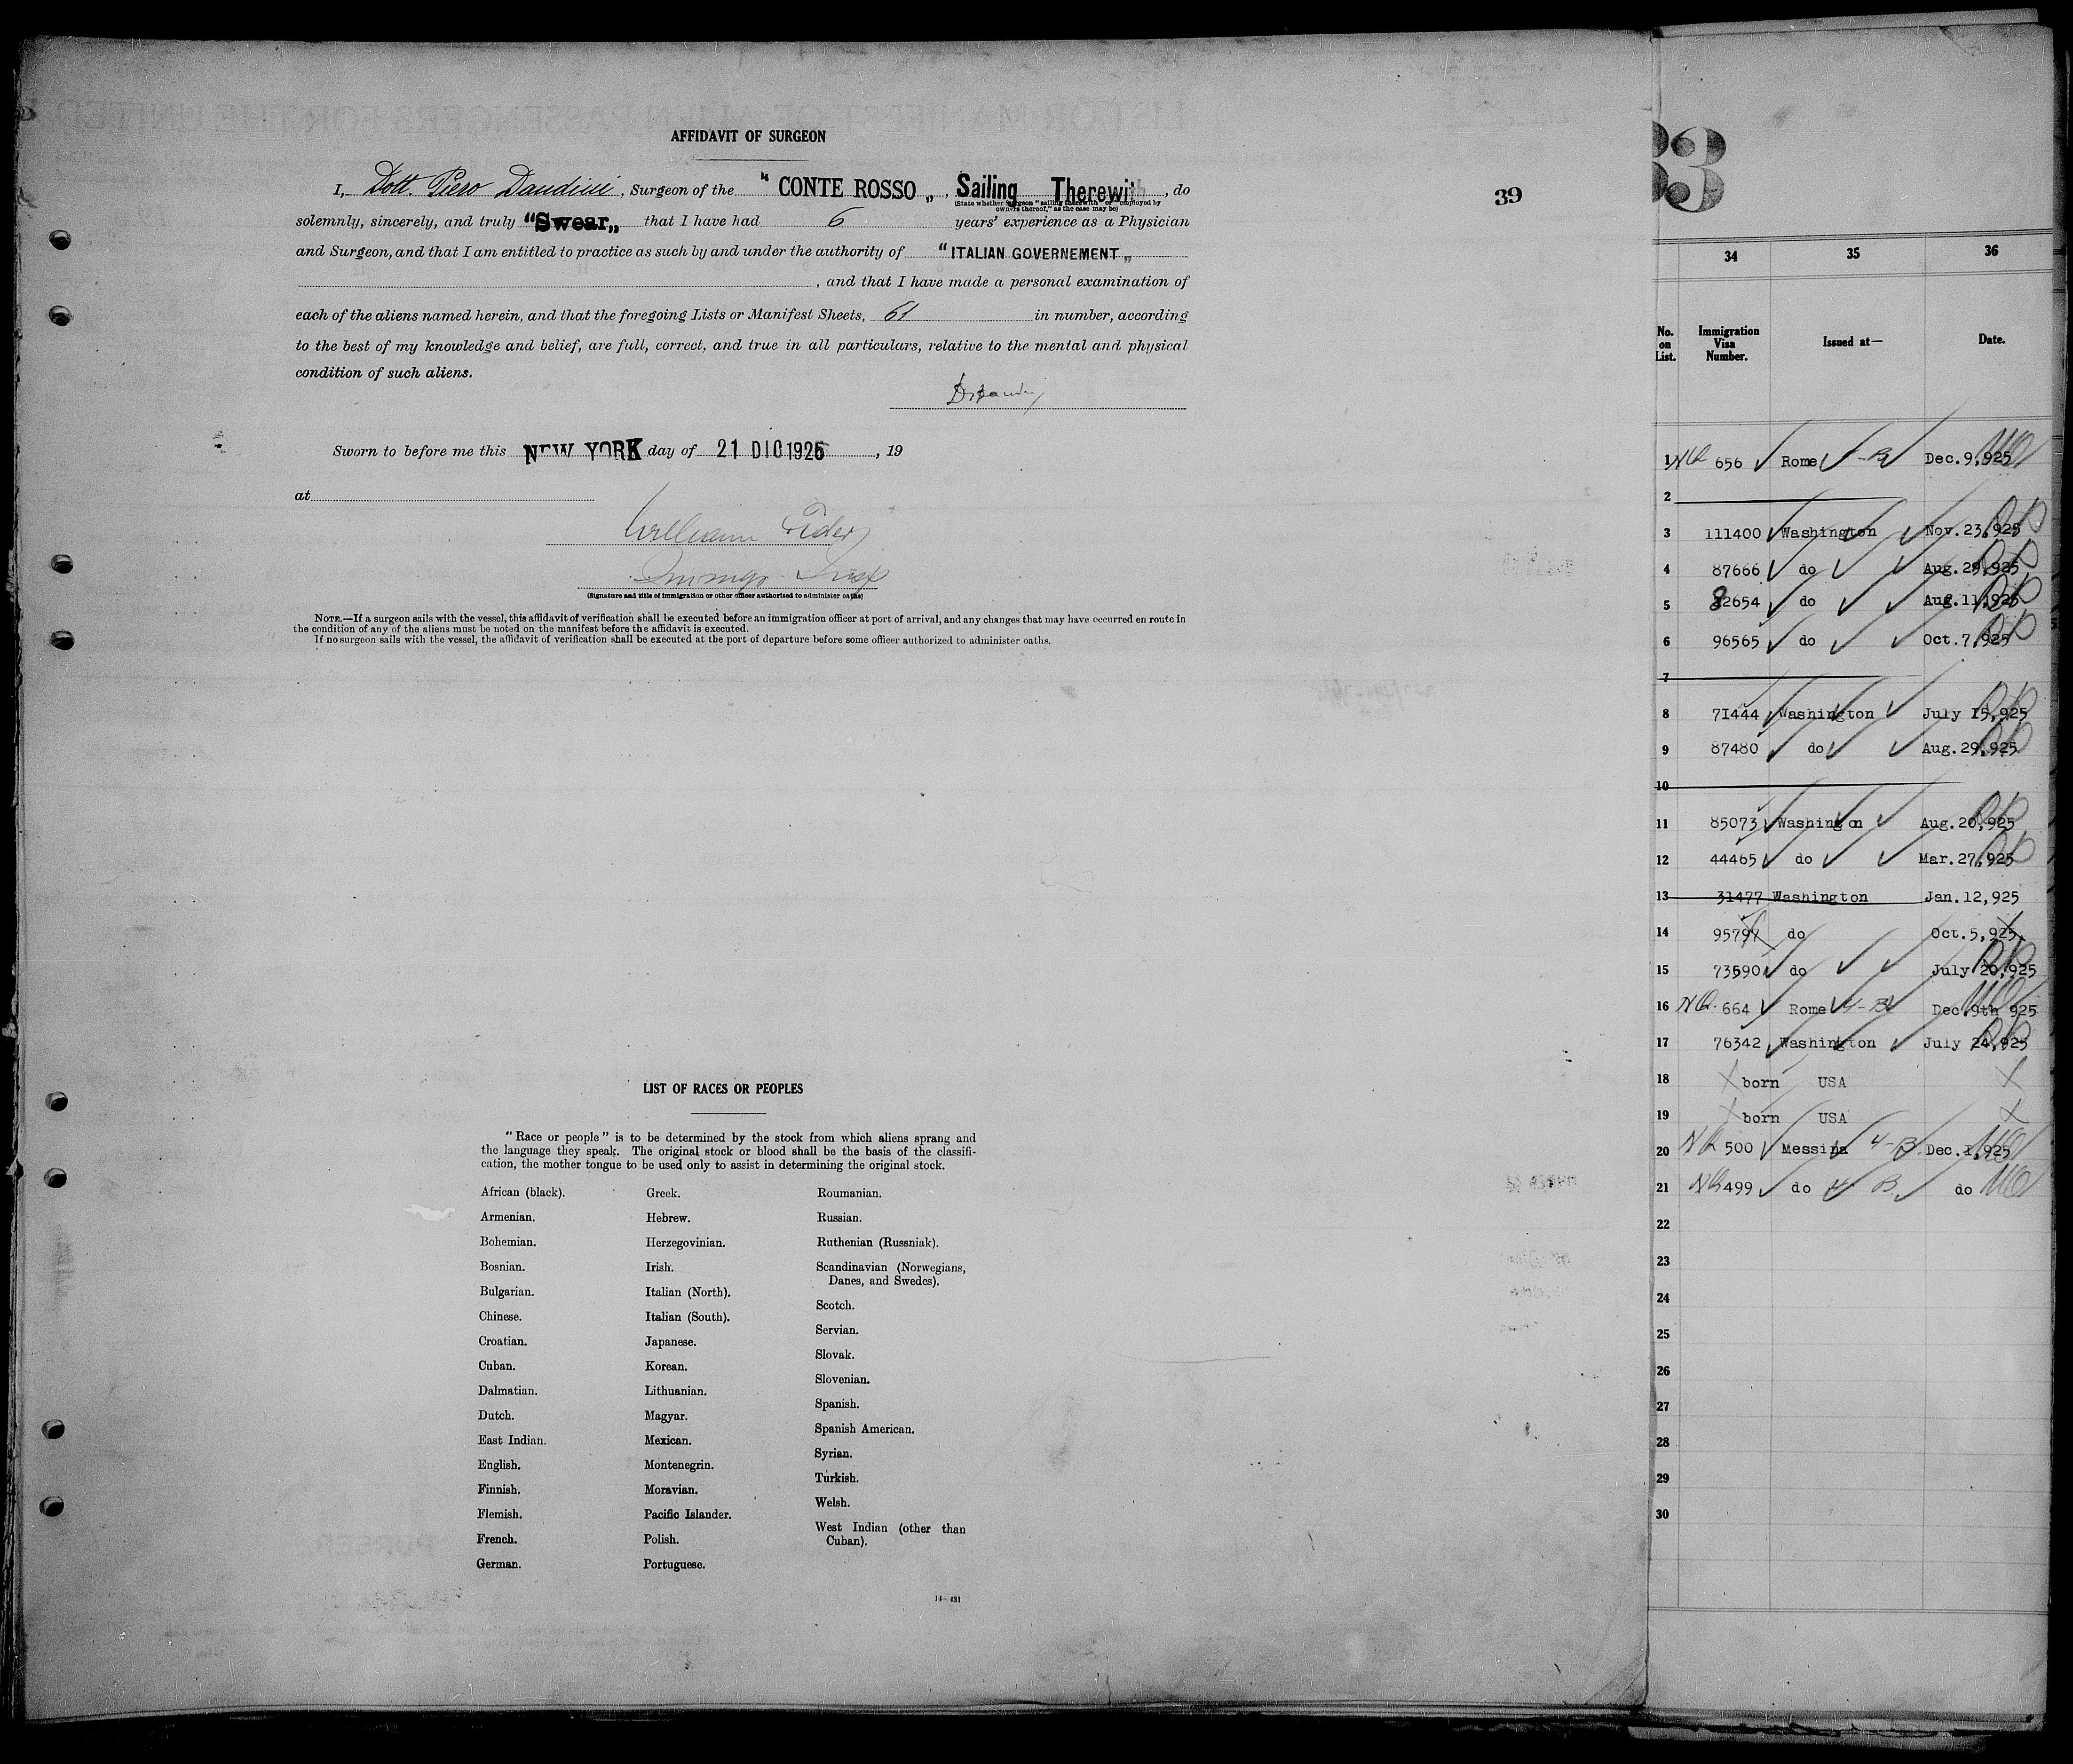 AFFIDAVIT OF SURGEON
I, Dott. Piero Dandini, Surgeon of the “ CONTE ROSSO „, Sailing Therewith, do
(State whether Surgeon "sailing therewith" or "employed by
owners thereof," as the case may be)
solemnly, sincerely, and truly “Swear„ that I have had 6 years' experience as a Physician
and Surgeon, and that I am entitled to practice as such by and under the authority of “ITALIAN GOVERNEMENT„
, and that I have made a personal examination of
each of the aliens named herein, and that the foregoing Lists or Manifest Sheets, 61 in number, according
to the best of my knowledge and belief, are full, correct, and true in all particulars, relative to the mental and physical
condition of such aliens.
Sworn to before me this NEW YORK day of 21 DIC 1925, 19
at
William
Immigr Insp
(Signature and title of immigration or other officer authorized to administer oaths)
NOTE.—If a surgeon sails with the vessel, this affidavit of verification shall be executed before an immigration officer at port of arrival, and any changes that may have occurred en route in
the condition of any of the aliens must be noted on the manifest before the affidavit is executed.
If no surgeon sails with the vessel, the affidavit of verification shall be executed at the port of departure before some officer authorized to administer oaths.
LIST OF RACES OR PEOPLES
"Race or people" is to be determined by the stock from which aliens sprang and
the language they speak. The original stock or blood shall be the basis of the classifi-
cation, the mother tongue to be used only to assist in determining the original stock.
African (black).
Armenian.
Bohemian.
Bosnian.
Bulgarian.
Chinese.
Croatian.
Cuban.
Dalmatian.
Dutch.
East Indian.
English.
Finnish.
Flemish.
French.
German.
Greek.
Hebrew.
Herzegovinian.
Irish.
Italian (North).
Italian (South).
Japanese.
Korean.
Lithuanian.
Magyar.
Mexican.
Montenegrin.
Moravian.
Pacific Islander.
Polish.
Portuguese.
Roumanian.
Russian.
Ruthenian (Russniak).
Scandinavian (Norwegians,
Danes, and Swedes).
Scotch.
Servian.
Slovak.
Slovenian.
Spanish.
Spanish American.
Syrian.
Turkish.
Welsh.
West Indian (other than
Cuban).
14—431
39
33
34 35 36
No. on List. Immigration Visa Number. Issued at— Date.
1 NQ 656 Rome 4-B Dec.9,925
2
3 111400 Washington Nov.23,925
4 87666 do Aug.29,925
5 82654 do Aug.11,925
6 96565 do Oct.7,925
7
8 71444 Washington July 15,925
9 87480 do Aug.29,925
10
11 85073 Washington Aug.20,925
12 44465 do Mar.27,925
13 31477 Washington Jan.12,925
14 95797 do Oct.5,925.
15 73590 do July 20,925
16 NQ. 664 Rome 4-B Dec.9th 925
17 76342 Washington July 24,925
18 born USA
19 born USA
20 NQ 500 Messina 4-B Dec.1,925
21 NQ 499 do 4 B do
22
23
24
25
26
27
28
29
30